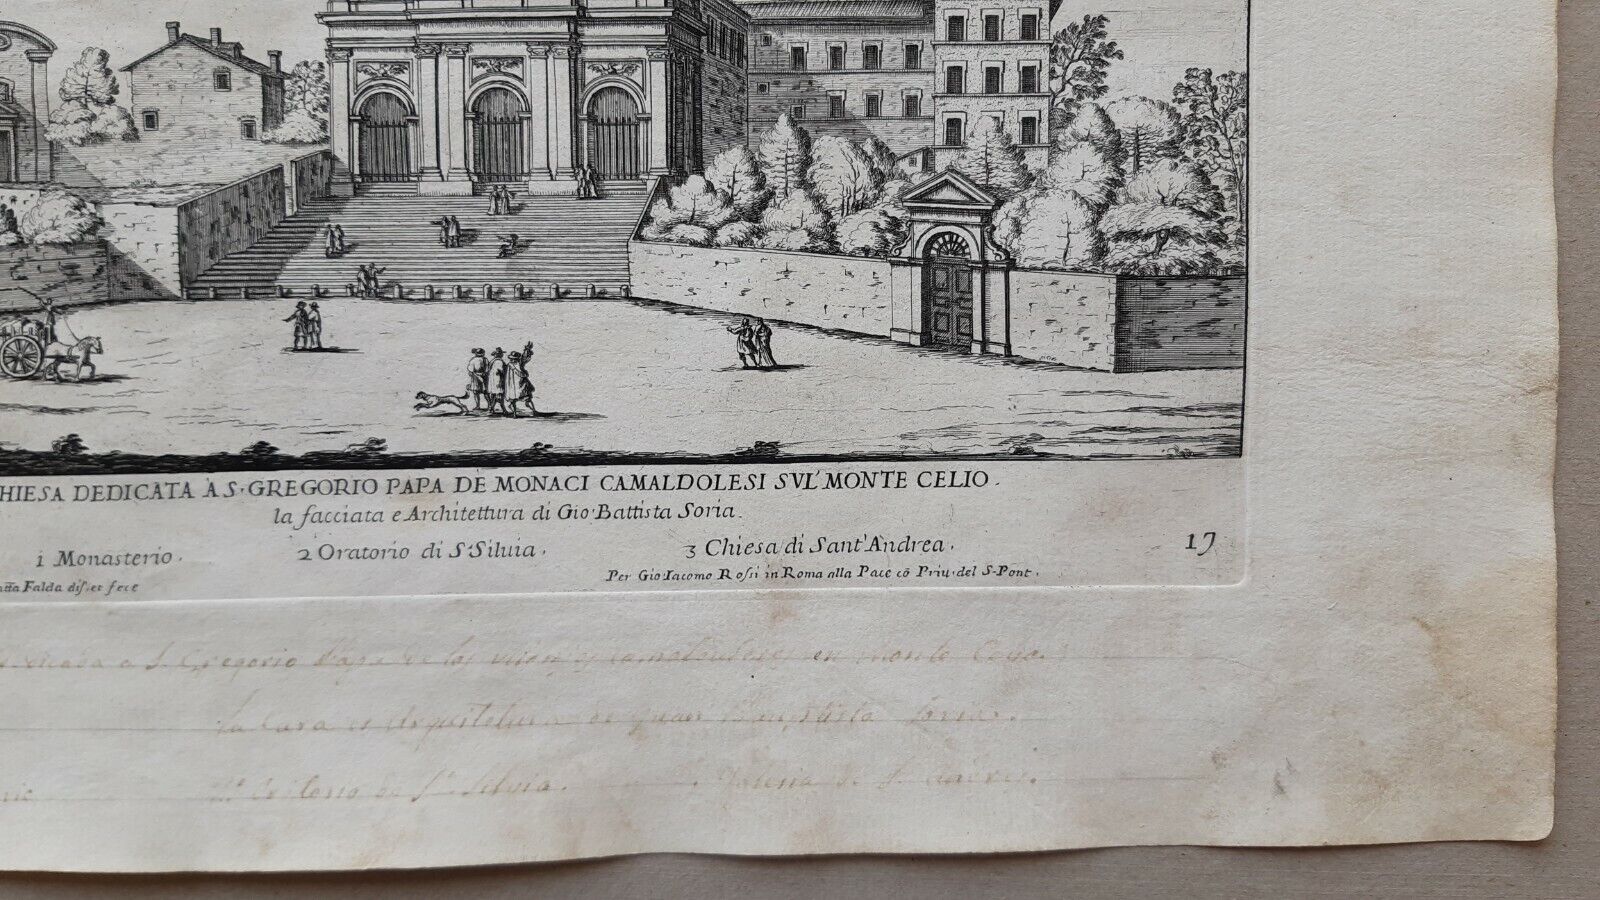 HIESA DEDICATA A S. GREGORIO PAPA DE MONACI CAMALDOLESI SVL' MONTE CELIO.
la facciata e Architettura di Gio. Battista Soria.
1 Monasterio. 2 Oratorio di S. Siluia. 3 Chiesa di Sant' Andrea. 17
Falda dis. et fece Per Gio. Iacomo Rossi in Roma alla Pace cõ Priu. del S. Pont.
a S. Gregorio Papa de los en Monte
de Juan Baptista Soria.
de Sta. Silvia. de S.